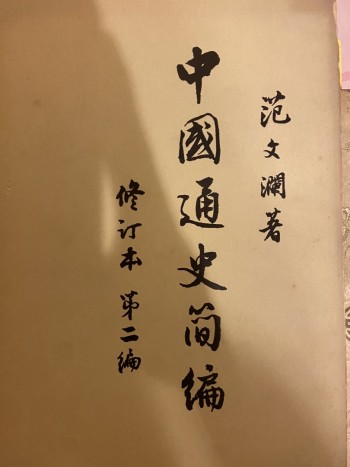 范文瀾著
中國通史简編
修订本 第二編